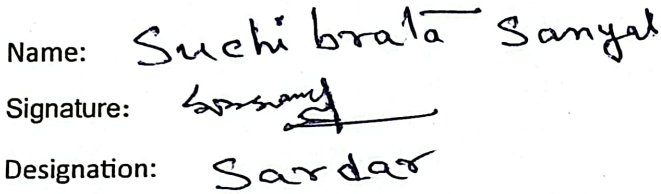 Name: Suchibrata Sanyal
Signature:
Designation: Sardar